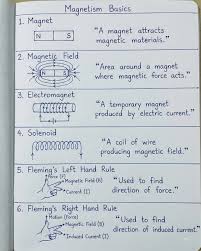 Magnetism Basics
1. Magnet
N S
"A magnet attracts
magnetic materials."
2. Magnetic Field
N S
"Area around a magnet
where magnetic force acts."
3. Electromagnet
"A temporary magnet
produced by electric current."
4. Solenoid
"A coil of wire
producing magnetic field."
5. Fleming's Left Hand Rule
Force (F)
Magnetic Field (B)
Current (I)
"Used to find
direction of force."
6. Fleming's Right Hand Rule
Motion (Force)
Magnetic Field (B)
Induced Current (I)
"Used to find
direction of induced current."